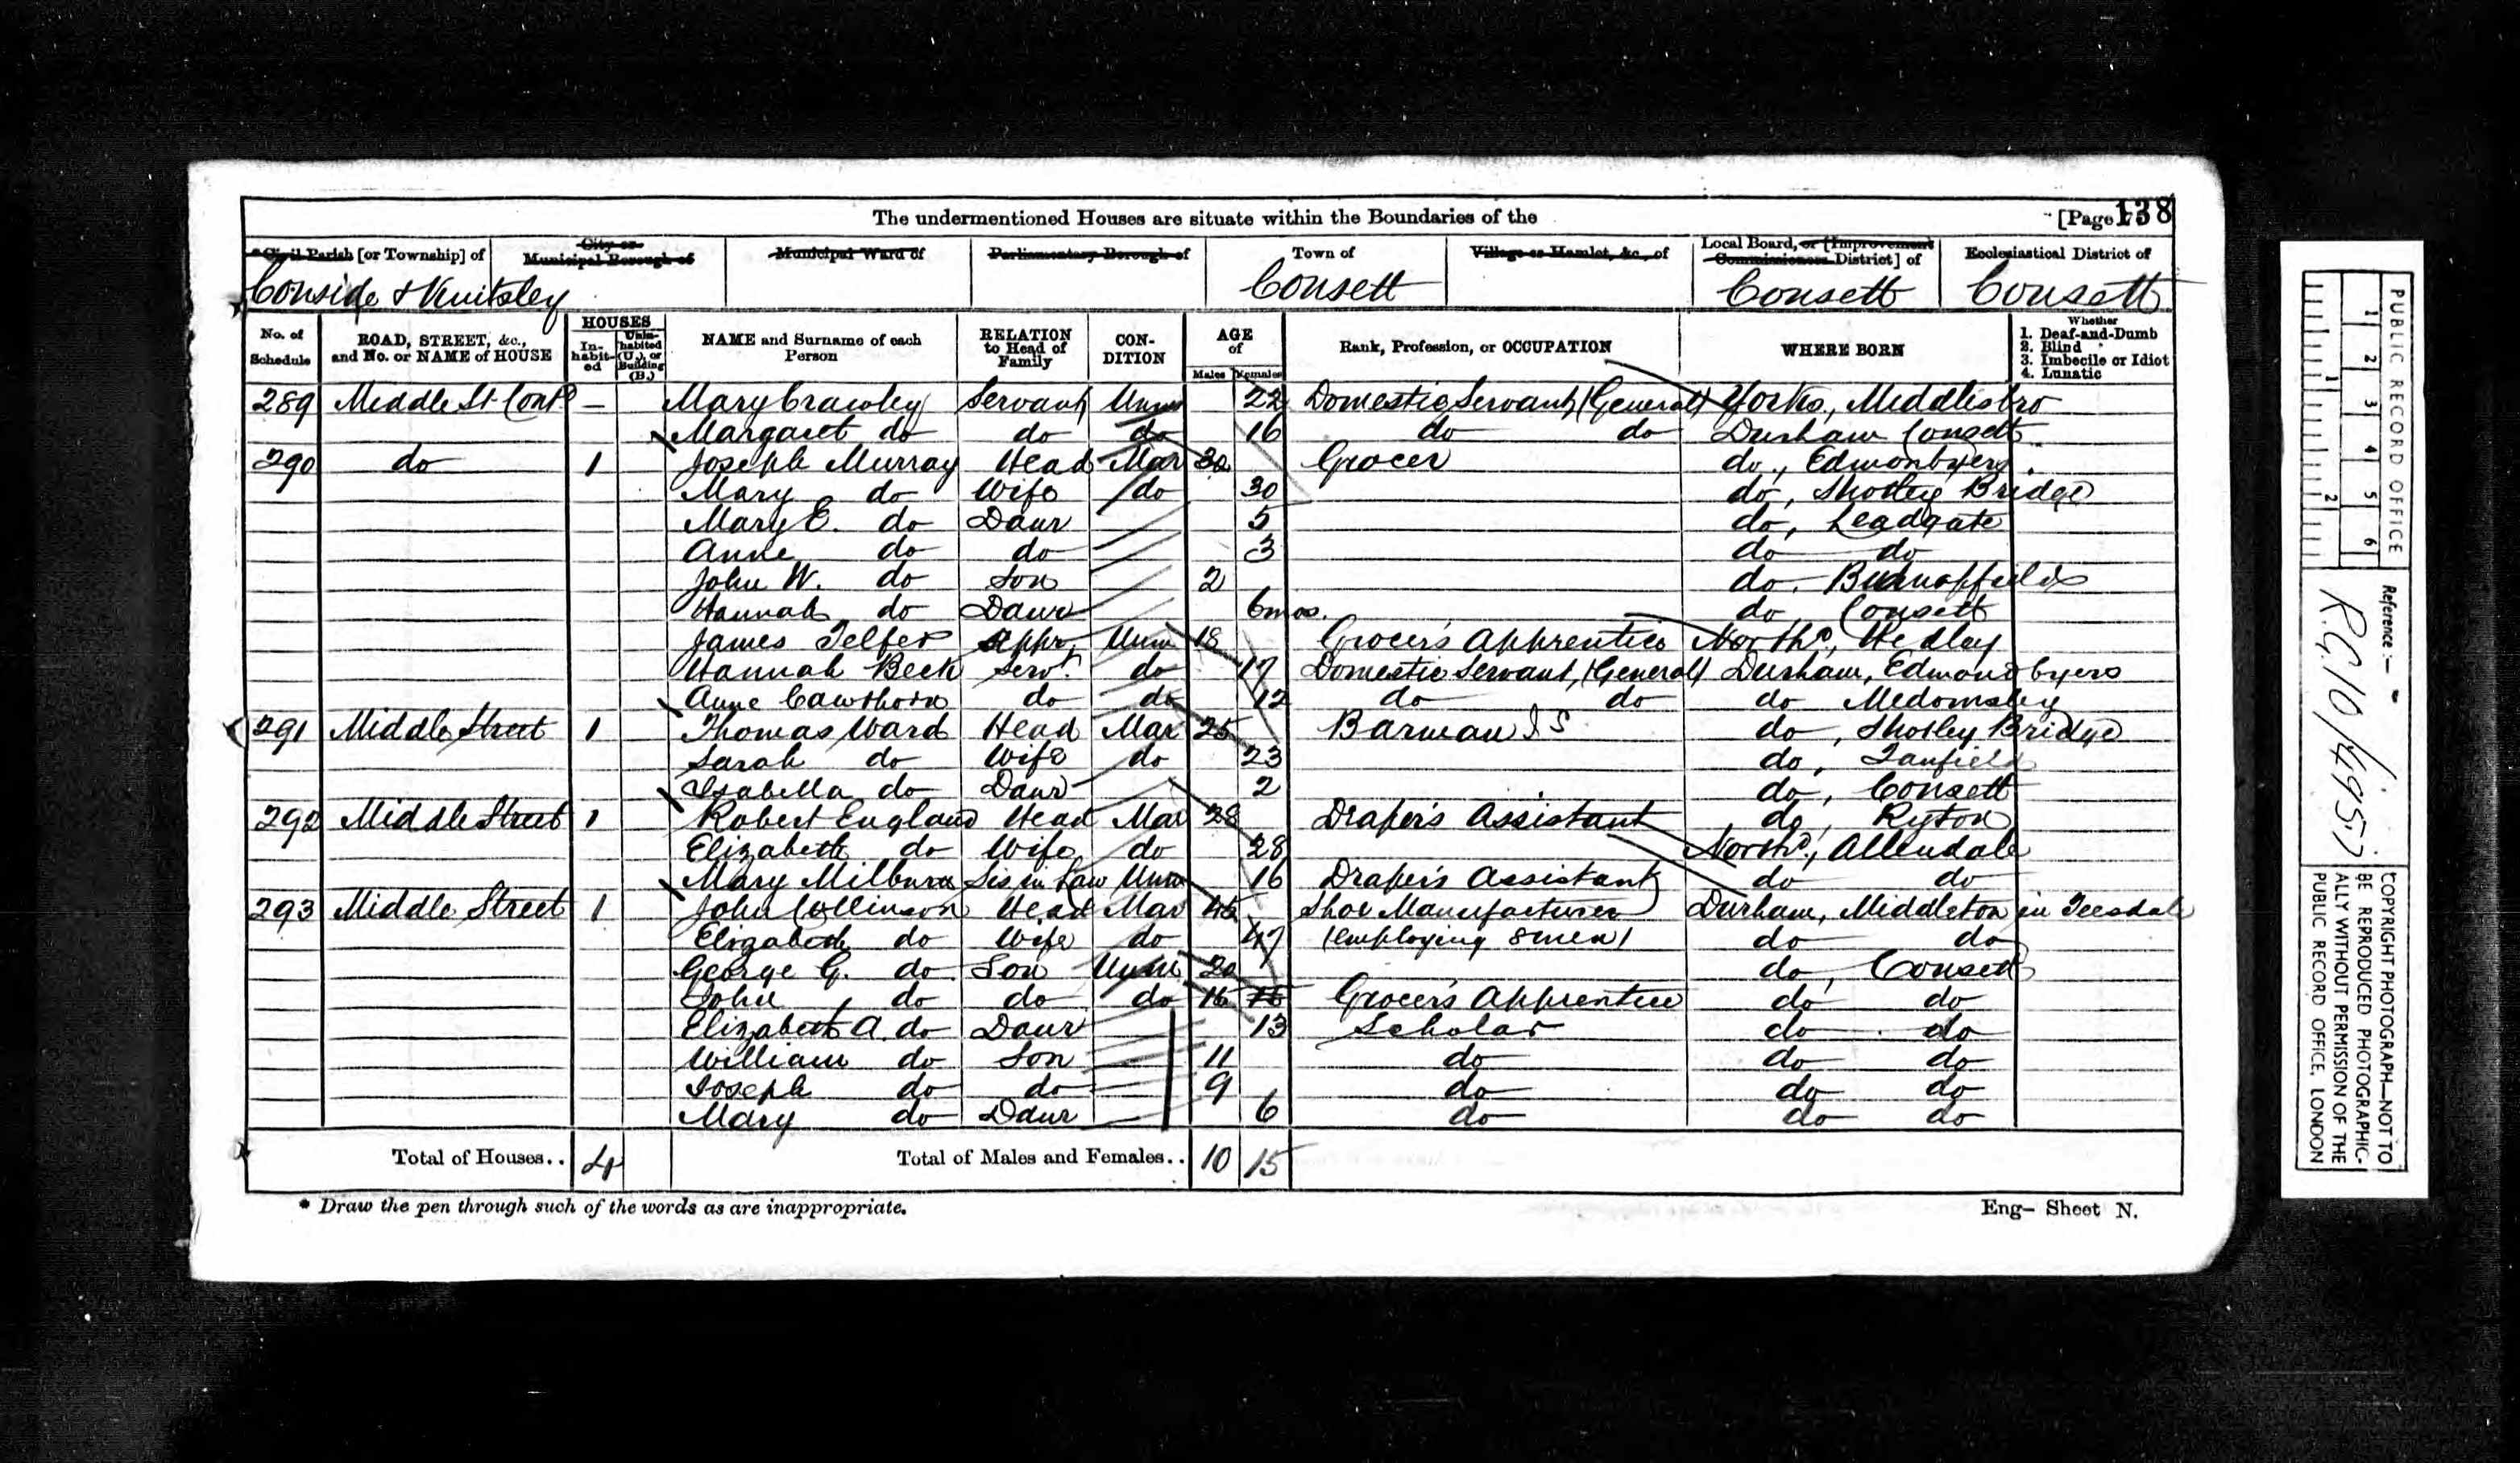 The undermentioned Houses are situate within the Boundaries of the [Page 138
* Civil Parish [or Township] of City or Municipal Borough of Municipal Ward of Parliamentary Borough of Town of Village or Hamlet, &c., of Local Board, or [Improvement Commissioners District] of Ecclesiastical District of
Conside & Knitsley Consett Consett Consett
No. of Schedule ROAD, STREET, &c., and No. or NAME of HOUSE HOUSES In-habit-ed Unin-habited (U.), or Building (B.) NAME and Surname of each Person RELATION to Head of Family CON-DITION AGE of Males Females Rank, Profession, or OCCUPATION WHERE BORN Whether 1. Deaf-and-Dumb 2. Blind 3. Imbecile or Idiot 4. Lunatic
289 Middle St Contd — Mary Crawley Servant Unm 22 Domestic Servant, (General) Yorks, Middlesbro
Margaret do do do 16 do do Durham Consett
290 do 1 Joseph Murray Head Mar 32 Grocer do, Edmonbyers
Mary do Wife do 30 do, Shotley Bridge
Mary E. do Daur 5 do, Leadgate
Anne do do 3 do do
John W. do Son 2 do. Burnopfield
Hannah do Daur 6mos. do, Consett
James Telfer Appr. Unm 18 Grocer's Apprentice Northd, Hedley
Hannah Beck Servt do 17 Domestic Servant, (General) Durham, Edmondbyers
Anne Cawthorn do do 12 do do do Medomsley
291 Middle Street 1 Thomas Ward Head Mar 25 Barman I S do, Shotley Bridge
Sarah do Wife do 23 do, Tanfield
Isabella do Daur 2 do, Consett
292 Middle Street 1 Robert England Head Mar 28 Draper's Assistant do, Ryton
Elizabeth do Wife do 28 Northd., Allendale
Mary Milburn Sis in Law Unm 16 Draper's Assistant do do
293 Middle Street 1 John Collinson Head Mar 45 Shoe Manufacturer Durham, Middleton in Teesdale
Elizabeth do Wife do 47 (employing 8 men) do do
George G. do Son Unm 20 do, Consett
John do do do 16 16 Grocer's Apprentice do do
Elizabeth A. do Daur 13 Scholar do do
William do Son 11 do do do
Joseph do do 9 do do do
Mary do Daur 6 do do do
Total of Houses.. 4 Total of Males and Females.. 10 15
* Draw the pen through such of the words as are inappropriate. Eng– Sheet N.
PUBLIC RECORD OFFICE
1 2 3 4 5 6
1 2
Reference :—
R.G. 10/4957
COPYRIGHT PHOTOGRAPH—NOT TO
BE REPRODUCED PHOTOGRAPHIC-
ALLY WITHOUT PERMISSION OF THE
PUBLIC RECORD OFFICE, LONDON